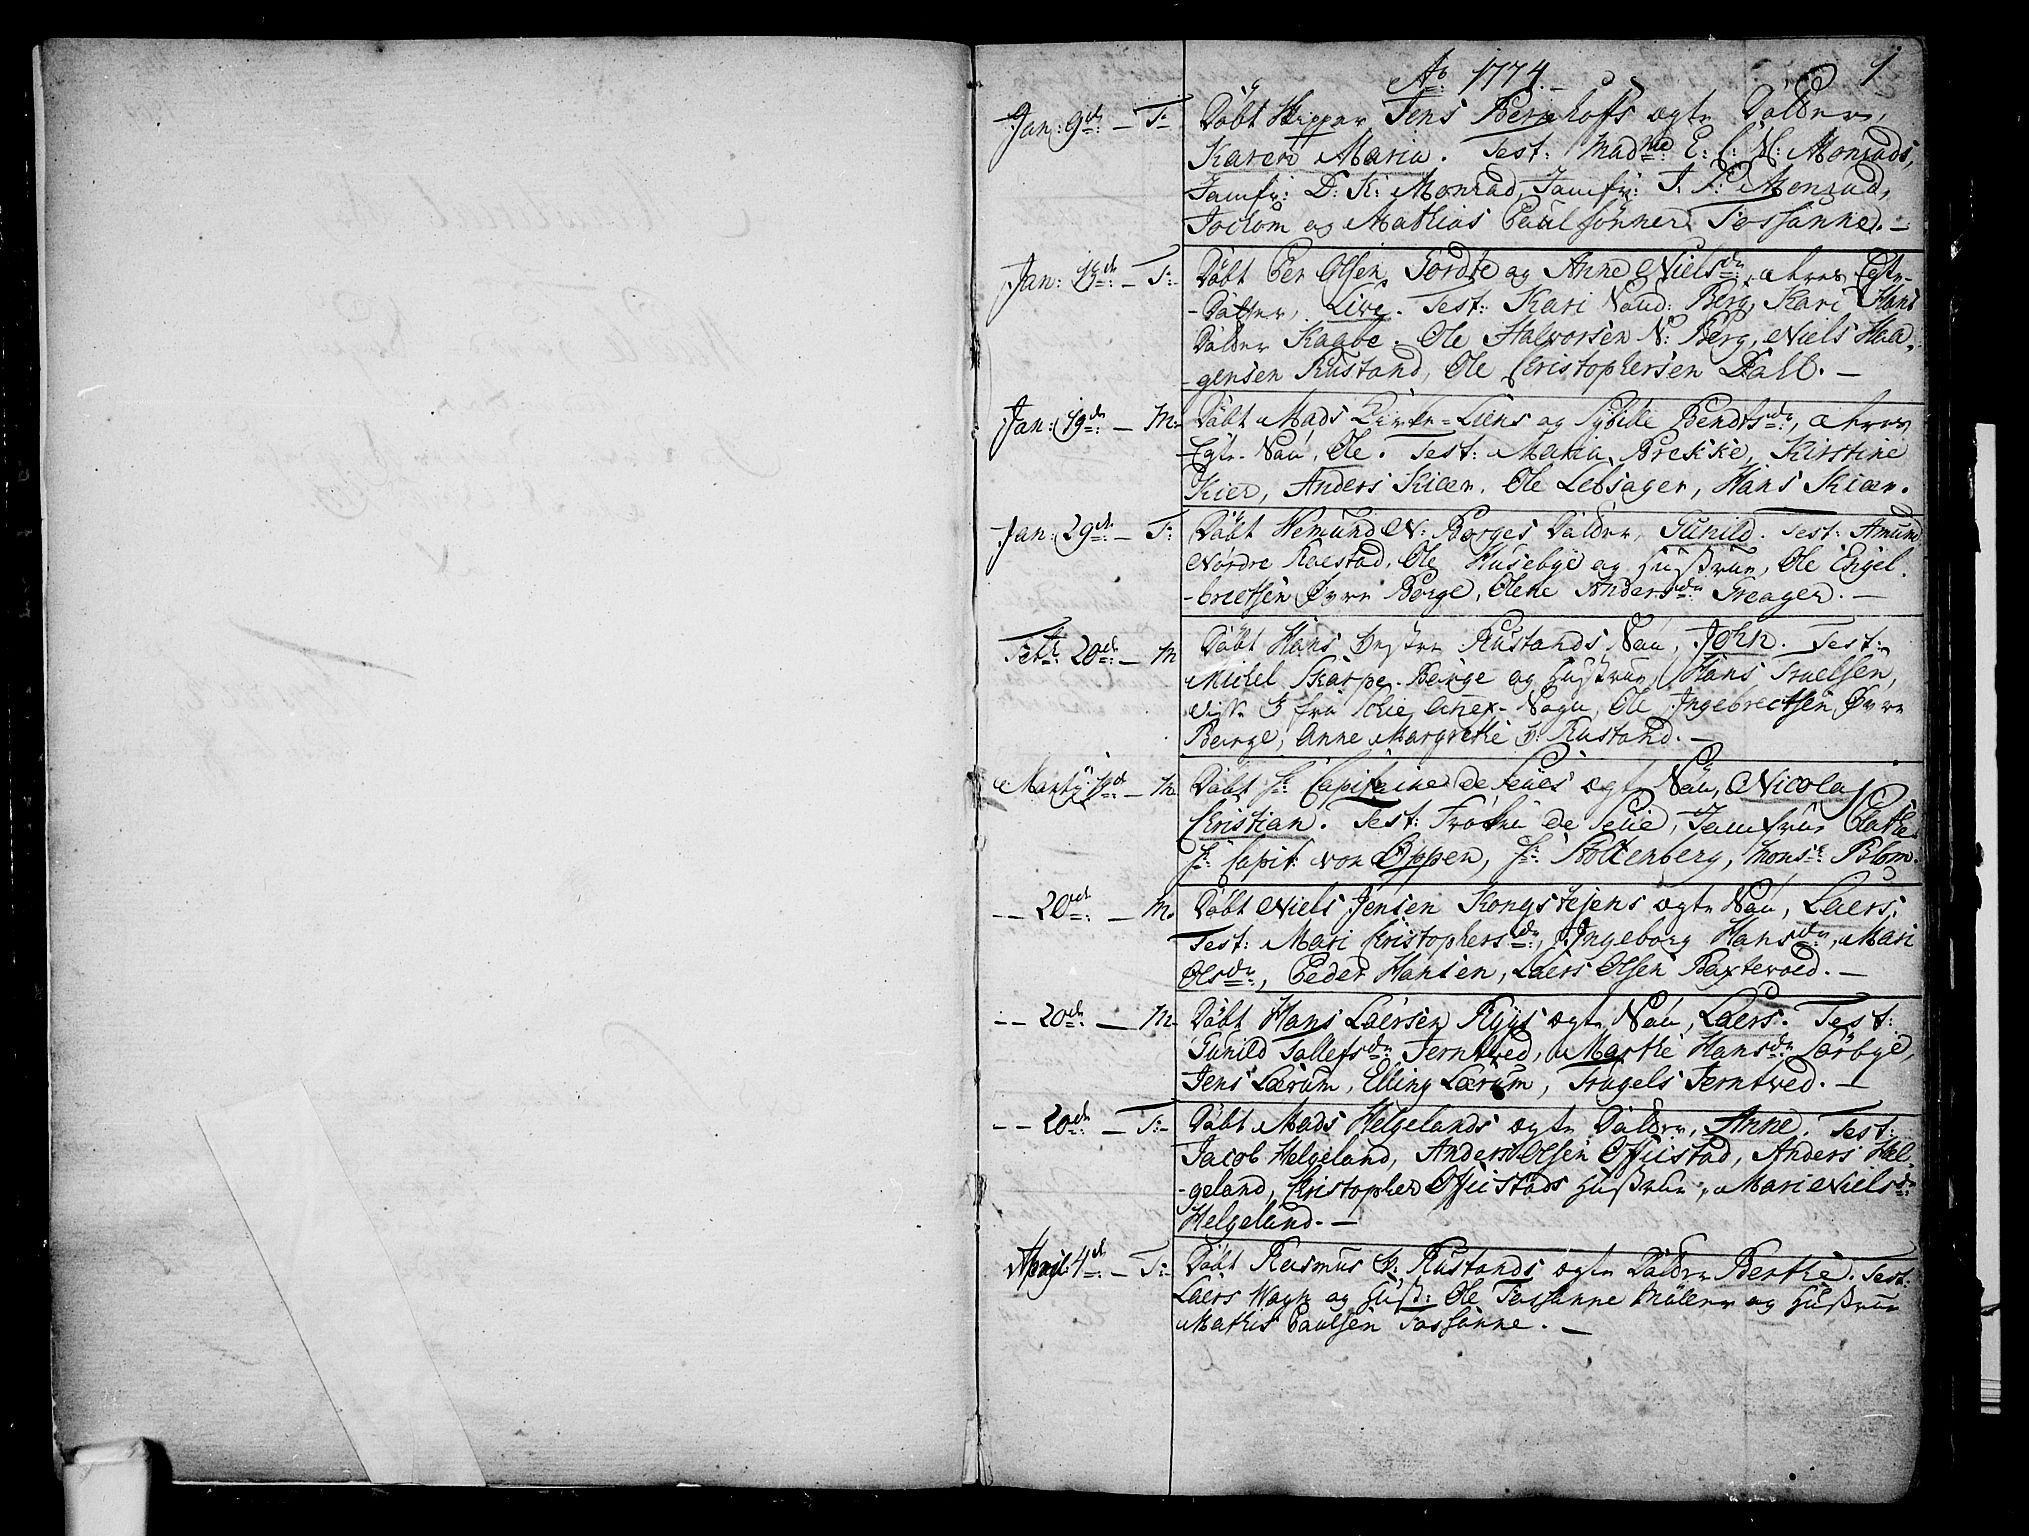 Ao 1774. 1.
Jan: 9de: – T: Döbt Skipper Jens Berghoffs ægte Dotter,
Karen Maria. Test: Madme: E: C: N: Monrads,
Jomfr: D: K: Monrad, Jomfr: J. P: Monrad,
Jochom og Mathias Paulsönner Fossanne. –
Jan: 13de: – T: Döbt Per Olsen Fordte og Anne Nielsdr:
Datter, Live. Test: Kari Berg, Kari Hans
Datter Kaabe. Ole Halvorsen N: Berg, Niels Haa-
gensen Rustand, Ole Cristophersen Dahl. –
Jan: 19de: – M: Döbt Mads Liens og Sybille Bendtsdr:,
Ægte Sön, Ole. Test: Maria Brekke, Kirstine
Kier, Anders Kiær, Ole Lebsager, Hans Kiær.
Jan: 29de: – T: Döbt Hemund N: Borges Datter, Gunild. Test: Amund
Nordre Raestad, Ole Husebye og Hustrue, Ole Engel-
bretsen Øvre Borge, Olene Andersdr: Treager. –
Febr: 20de: – M Döbt Hans Rustands Sön, John. Test:
Michel Skarpe-Berge og Hustrue, Hans Truelsen,
fra Anex-Sogn, Ole Ingebrectsen Øvre
Berge, Anne Margrethe Rustand. –
Marty – M Döbt Hr: Capitaine de Seues ægte Sön, Nicolay
Cristian. Test: Fröken de Seue, Jomfrue
Hr: Capit: von Øppen, Hr: Stoltenberg, Monsr: Blom.
– – 20de: – M. Döbt Niels Jensen Kongstejens ægte Sön, Laers.
Test: Mari Cristophersdr:, Ingeborg Hansdr:, Mari
Olsdr:, Peder Hansen, Laers Olsen Baxtevoed. –
– – 20de: – M- Döbt Hans Laersen Ryys ægte Sön, Laers. Test:
Gunild Tollefsdr: Jerntved, Marthe Hansdr: Sørbye,
Jens Lærum, Elling Lærum, Trugels Jerntved. –
– – 20de: – T:- Döbt Mads Helgelands ægte Datter, Anne. Test:
Jacob Helgeland, Anders Olsen Offiistad, Anders Hel-
geland, Cristopher Offiistads Hustrue, Mari Nielsdr:
Helgeland. –
April 4de: – T: Döbt Rasmus Rustands ægte Datter Berthe. Test:
Laers og Hust: Ole Fossanne Möller og Hustrue
Mathis Paulsen Fossanne. –